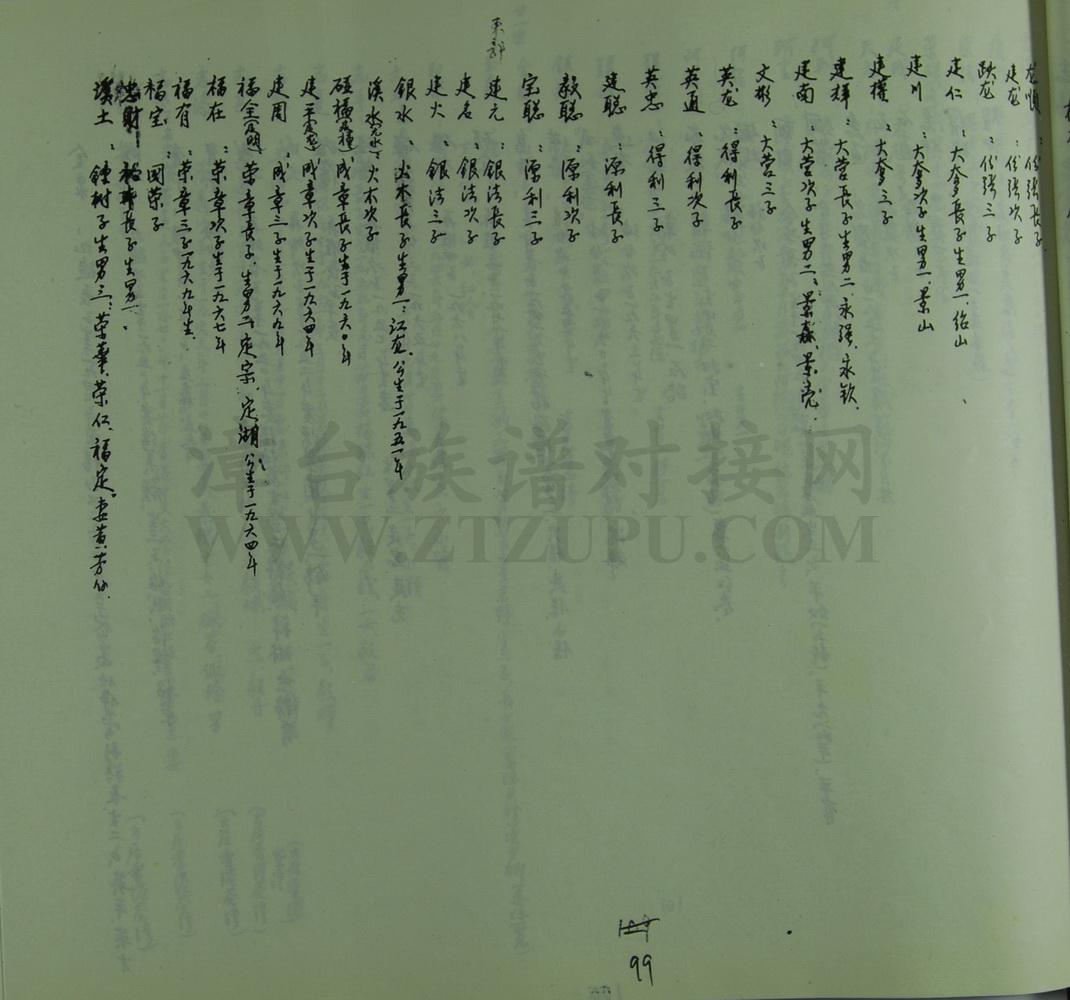 东部
龙順：份張長子
建龙：份張次子
欧龙：份張三子
建仁：大奎長子生男一、紹山
建川：大奎次子生男一、景山
建權：大奎三子
建輝：大营長子生男二、永强、永欽
建南：大营次子生男二、景森、景亮
文彬：大营三子
英龙：得利長子
英通：得利次子
英忠：得利三子
建聪：源利長子
毅聪：源利次子
宝聪：源利三子
建元：銀法長子
建名：銀法次子
建火：銀法三子
銀水、火木長子生男一：江龙、公生于一九五一年
溪水 火木次子
成章長子生于一九六〇年
建 成章次子生于一九六四年
建周：成章三子生于一九六九年
福全 荣章長子、生男二 定宗、定湖 公生于一九六四年
福在：荣章次子生于一九六七年
福有：荣章三子一九六九年生
福宝：國荣子
財 長子生男一、
溪土：鍾树子生男三：荣 、荣仁、福定、妻黄芳
漳台族谱对接网
WWW.ZTZUPU.COM
99